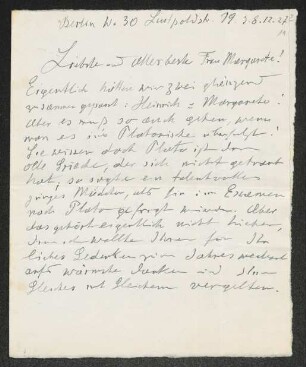 Berlin W. 30 Luitpoldstr. 19
Liebste und allerbeste Frau Margarete!
Eigentlich hätten wir zwei glänzend
zusammen gepasst: Heinrich = Margarethe!
Aber es muß so auch gehen, wenn
man es ins Platonische
Sie wissen doch Plato ist der
alte Grieche, der sich nicht getraut
hat, so sagte ein talentvolles
junges Mädchen, als sie im Examen
nach Plato gefragt wurde. Aber
das gehört eigentlich nicht hierher,
denn ich wollte Ihnen für Ihr
liebes Gedenken zum Jahreswechsel
aufs wärmste danken und Ihnen
Gleiches mit Gleichem vergelten.